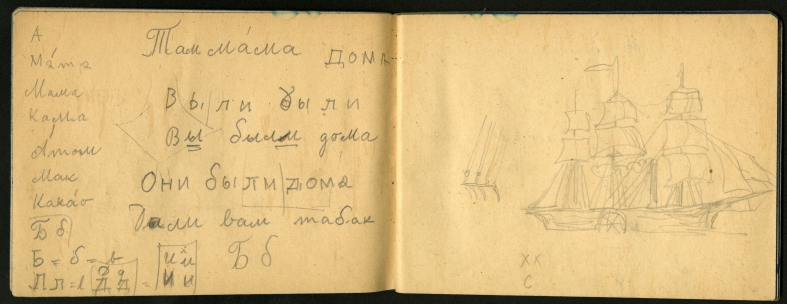 А
Ма́та
Мама
Кама
А́том
Мак
Кака́о
Б б
Б = б = в
Л л = l Д Д = И И
Там ма́ма дома
Вы ли были
Вы были дома
Они были дома
Дали вам табак
Б б
ХК
С